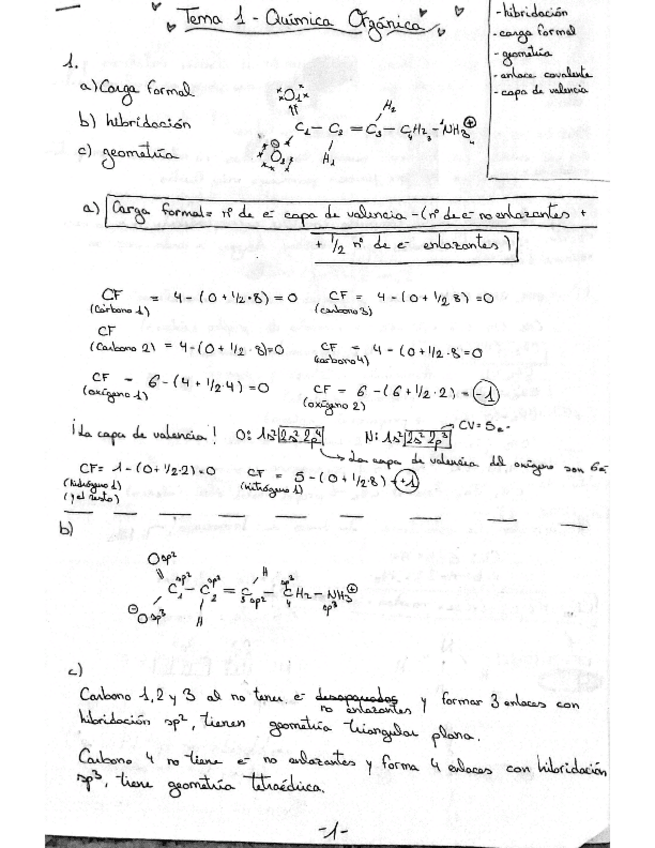 Tema 1 - Química Orgánica
- hibridación
- carga formal
- geometría
- enlace covalente
- capa de valencia
1.
a) Carga formal
b) hibridación
c) geometría
O1
H2
C1 - C2 = C3 - C4H2 - NH3 ⊕
O2 ⊖
H1
a) Carga formal = nº de e- capa de valencia - (nº de e- no enlazantes +
+ 1/2 nº de e- enlazantes)
CF = 4 - (0 + 1/2 · 8) = 0
(Carbono 1)
CF = 4 - (0 + 1/2 8) = 0
(carbono 3)
CF
(Carbono 2) = 4 - (0 + 1/2 · 8) = 0
CF = 4 - (0 + 1/2 · 8 = 0
(carbono 4)
CF = 6 - (4 + 1/2 · 4) = 0
(oxígeno 1)
CF = 6 - (6 + 1/2 · 2) = -1
(oxígeno 2)
¡La capa de valencia! O: 1s² 2s² 2p⁴ N: 1s² 2s² 2p³ → CV = 5e-
→ La capa de valencia del oxígeno son 6e-
CF = 1 - (0 + 1/2 · 2) = 0
(hidrógeno 1)
(y el resto)
CF = 5 - (0 + 1/2 · 8) = +1
(nitrógeno 1)
b)
O sp²
sp² sp² H sp³
C1 - C2 = C3 sp² - C4H2 - NH3 ⊕ sp³
⊖ O sp³ H
c)
Carbono 1, 2 y 3 al no tener e- desapareados y formar 3 enlaces con
no enlazantes
hibridación sp², tienen geometría triangular plana.
Carbono 4 no tiene e- no enlazantes y forma 4 enlaces con hibridación
sp³, tiene geometría tetraédrica.
-1-